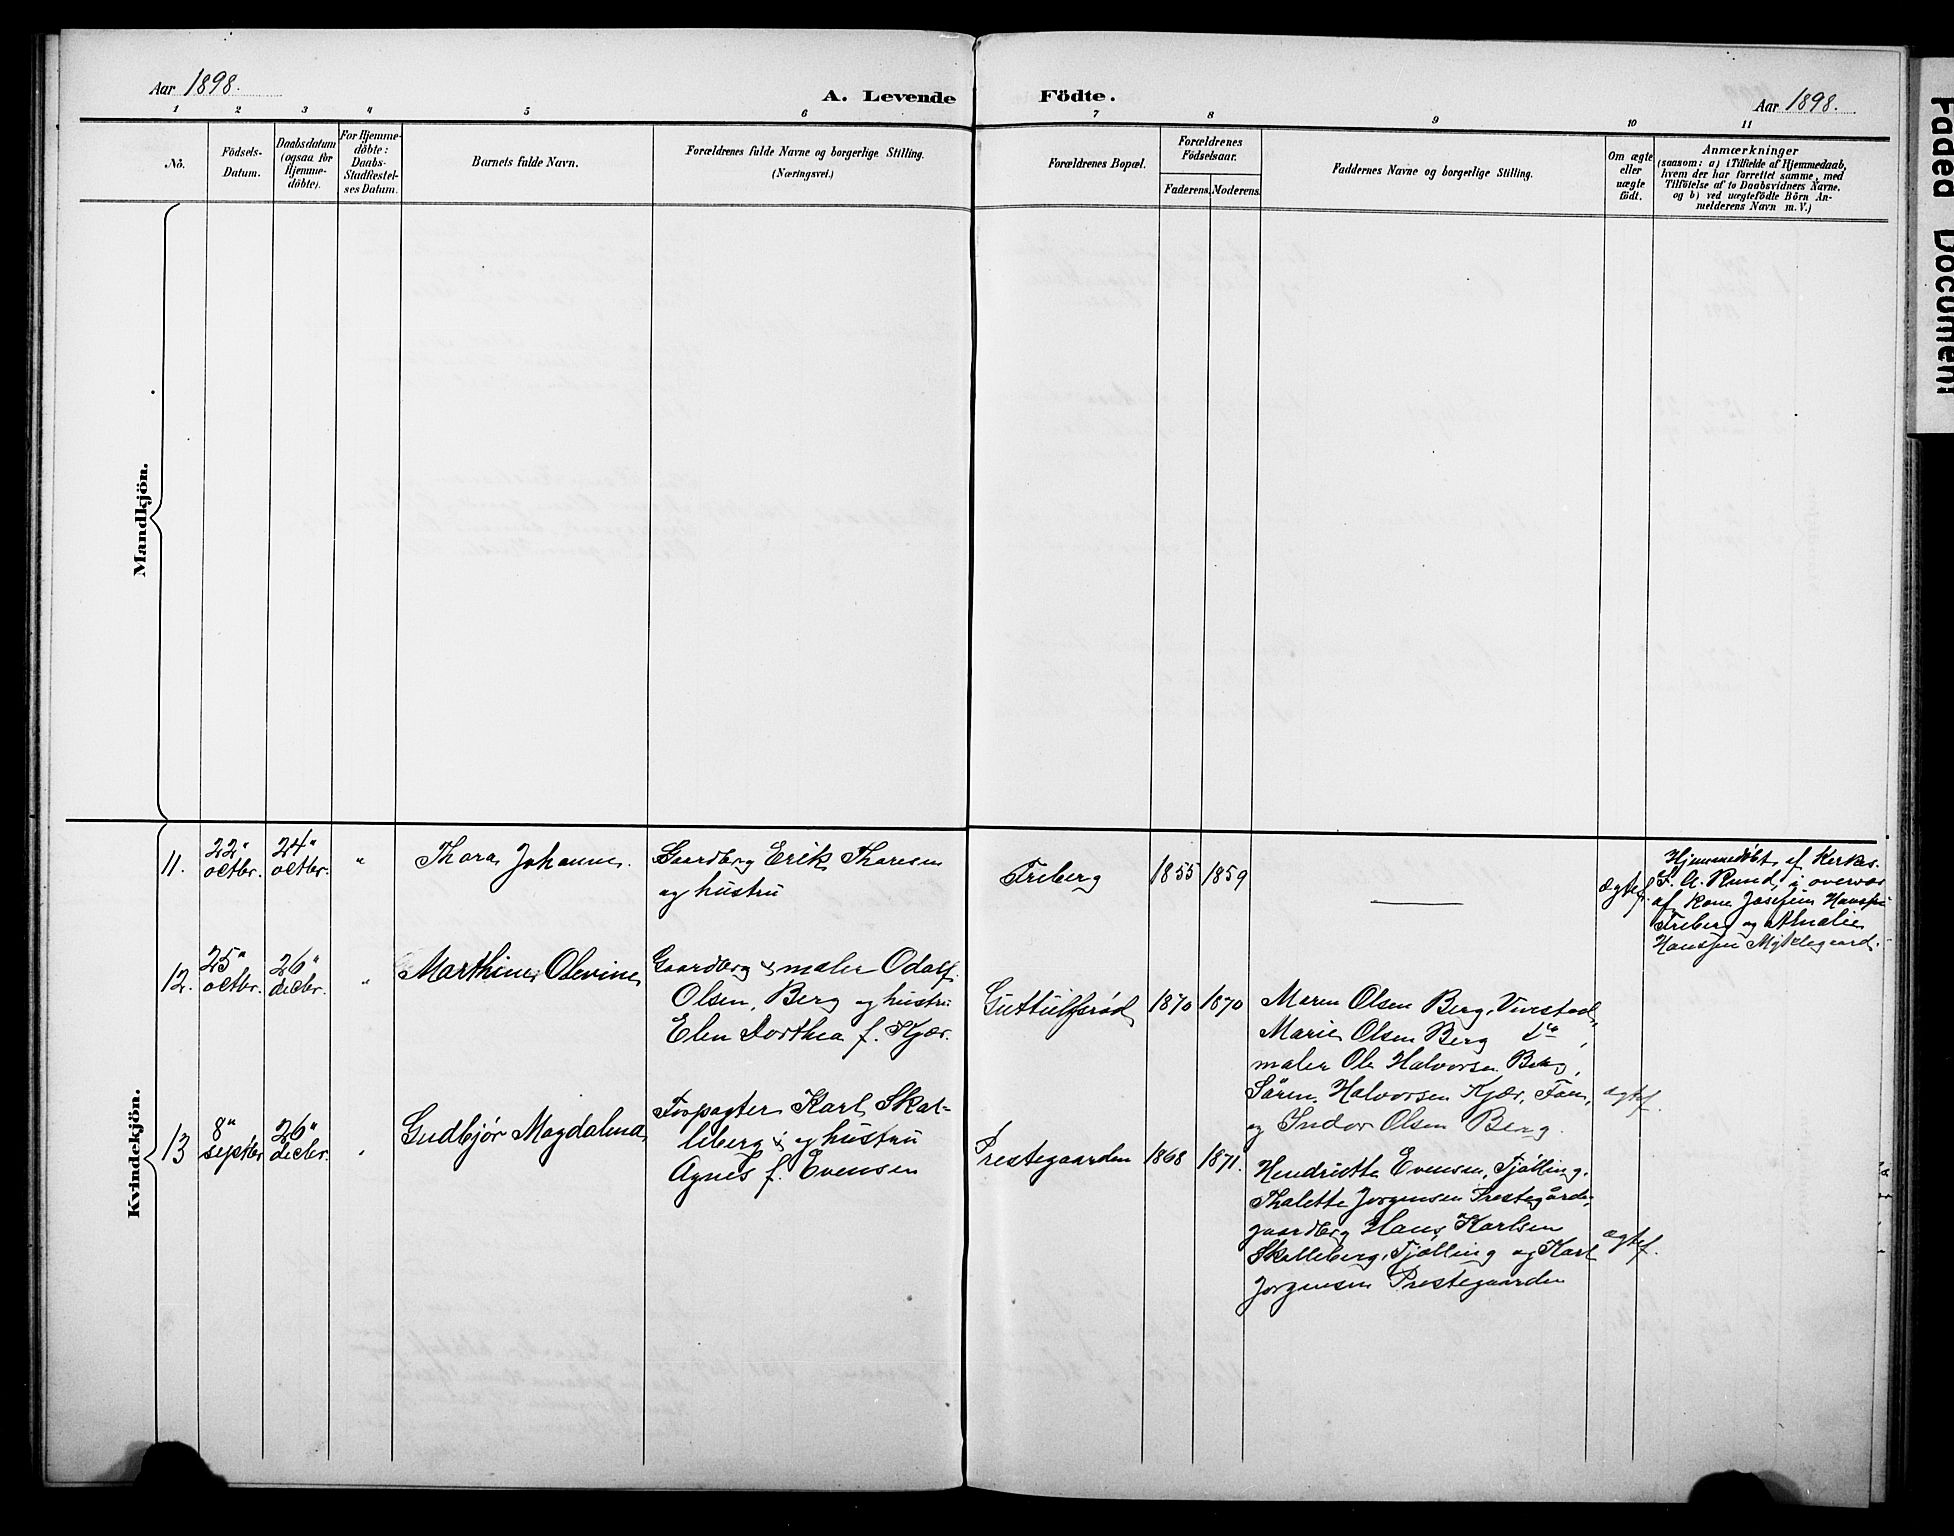 Aar 1898.
A. Levende Födte.
Aar 1898.
1 2 3 4 5 6 7 8 9 10 11
Nö.
Födsels-
Datum.
Daabsdatum
(ogsaa for
Hjemme-
döbte).
For Hjemme-
döbte:
Daabs-
Stadfæstel-
ses Datum.
Barnets fulde Navn.
Forældrenes fulde Navne og borgerlige Stilling.
(Næringsvei.)
Forældrenes Bopæl.
Forældrenes
Födselsaar.
Faderens. Moderens.
Faddernes Navne og borgerlige Stilling.
Om ægte
eller
uægte
födt.
Anmærkninger
(saasom: a) i Tilfælde af Hjemmedaab,
hvem der har forrettet samme, med
Tilföielse af to Daabsvidners Navne,
og b) ved uægtefödte Börn An-
melderens Navn m. V.)
Mandkjön.
Kvindekjön.
11.
22"
octbr.
24"
octbr.
"
Thora Johanne.
Gaardbrg Erik Thoresen
og hustru
Friberg
1855
1859
ægtef.
Hjemmedøbt af Kirkes.
F. A. Rund, i overvær
af Kone Josefine Hanssen
Friberg og Amalie
Hanssen Myklegaard.
12.
25"
octbr.
26"
decbr.
"
Marthine Olevine
Gaardbrg & maler Odolf
Olsen, Berg og hustru
Elen Dorthea f. Kjær.
Guttulfsrød
1870
1870
Maren Olsen Berg,
Marie Olsen Berg do,
maler Ole Halvorsen Berg,
Sören Halvorsen Kjær,
og Indor Olsen Berg.
ægtef.
13
8"
septbr
26"
decbr.
"
Gudbjør Magdalena
Forpagter Karl Skal-
leberg og hustru
Agnes f. Evensen
Prestegaarden
1868
1871.
Hendriette Evensen, Tjølling.
Thalette Jorgensen Prestegårde,
gaardbrg Hans Karlsen
Skalleberg, Tjølling og Karl
Jorgensen Prestegaarden
ægtef.
Faded Document